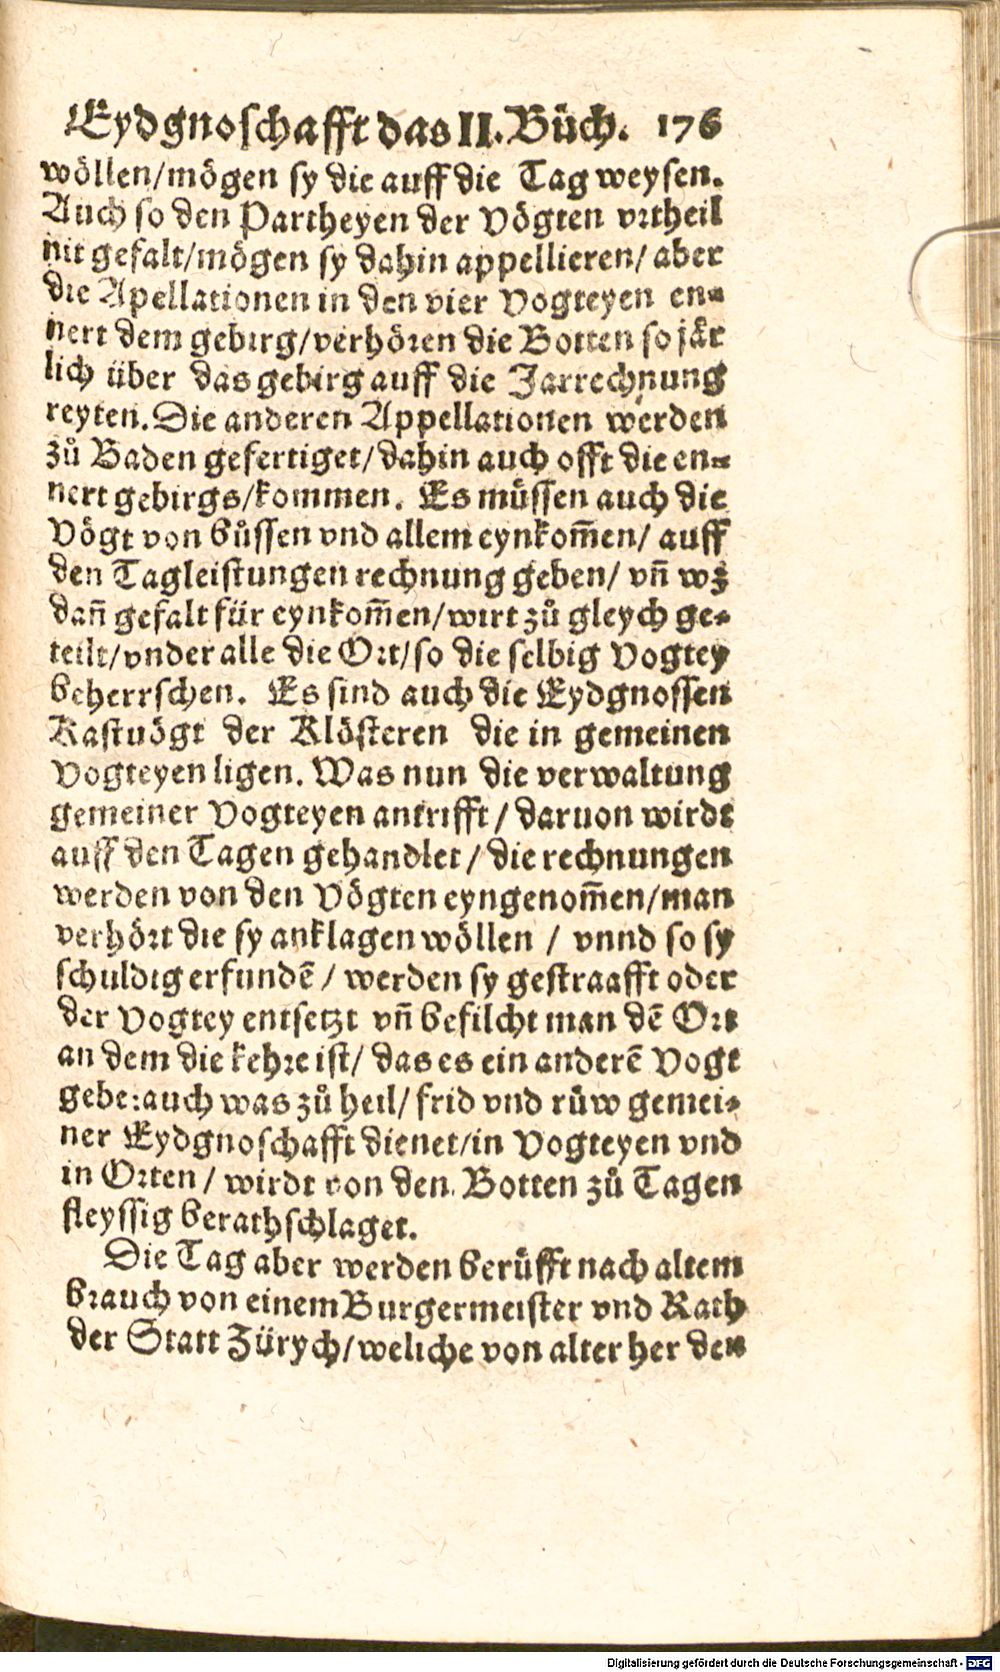 Eydgnoschafft das II. Bůch. 176
wöllen/mögen sy die auff die Tag weysen.
Auch so den Partheyen der Vögten vrtheil
nit gefalt/mögen sy dahin appellieren/ aber
die Apellationen in den vier Vogteyen en⸗
nert dem gebirg/verhören die Botten so jär
lich über das gebirg auff die Jarrechnung
reyten. Die anderen Appellationen werden
zů Baden gefertiget/dahin auch offt die en⸗
nert gebirgs/kommen. Es müssen auch die
Vögt von bůssen vnd allem eynkom̃en/ auff
den Tagleistungen rechnung geben/ vñ wz
dañ gefalt für eynkom̃en/wirt zů gleych ge⸗
teilt/vnder alle die Ort/so die selbig Vogtey
beherrschen. Es sind auch die Eydgnossen
Kastuögt der Klösteren die in gemeinen
Vogteyen ligen. Was nun die verwaltung
gemeiner Vogteyen antrifft / daruon wirdt
auff den Tagen gehandlet / die rechnungen
werden von den Vögten eyngenom̃en/man
verhört die sy anklagen wöllen / vnnd so sy
schuldig erfundẽ / werden sy gestraafft oder
der Vogtey entsetzt vñ befilcht man dẽ Ort
an dem die kehre ist/ das es ein anderẽ Vogt
gebe: auch was zů heil/ frid vnd růw gemei⸗
ner Eydgnoschafft dienet/in Vogteyen vnd
in Orten / wirdt von den Botten zů Tagen
fleyssig berathschlaget.
Die Tag aber werden berüfft nach altem
brauch von einem Burgermeister vnd Rath
der Statt Zürych/weliche von alter her den
Digitalisierung gefördert durch die Deutsche Forschungsgemeinschaft - DFG